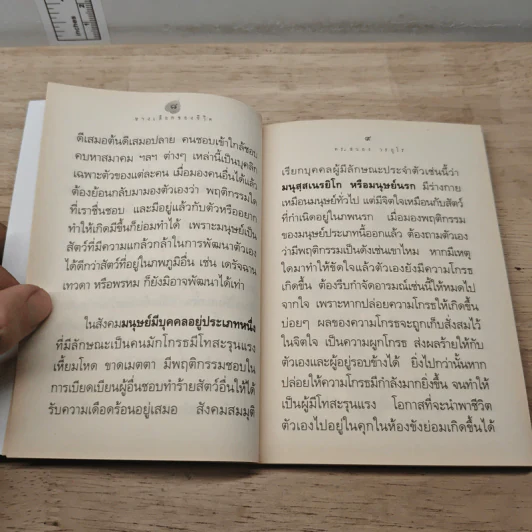 ๘
ทางเลือกของชีวิต
ดีเสมอต้นดีเสมอปลาย คนชอบเข้าใกล้ชอบ
คบหาสมาคม ฯลฯ ต่างๆ เหล่านี้เป็นบุคลิก
เฉพาะตัวของแต่ละคน เมื่อมองคนอื่นได้แล้ว
ต้องย้อนกลับมามองตัวเองว่า พฤติกรรมใด
ที่เราชื่นชอบ และมีอยู่แล้วกับตัวหรืออยาก
ทำให้เกิดมีขึ้นก็ย่อมทำได้ เพราะมนุษย์เป็น
สัตว์ที่มีความแกล้วกล้าในการพัฒนาตัวเอง
ได้ดีกว่าสัตว์ที่อยู่ในภพภูมิอื่น เช่น เดรัจฉาน
เทวดา หรือพรหม ก็ยังมิอาจพัฒนาได้เท่า
ในสังคมมนุษย์มีบุคคลอยู่ประเภทหนึ่ง
ที่มีลักษณะเป็นคนมักโกรธมีโทสะรุนแรง
เหี้ยมโหด ขาดเมตตา มีพฤติกรรมชอบใน
การเบียดเบียนผู้อื่นชอบทำร้ายสัตว์อื่นให้ได้
รับความเดือดร้อนอยู่เสมอ สังคมสมมุติ
๙
ดร. สนอง วรอุไร
เรียกบุคคลผู้มีลักษณะประจำตัวเช่นนี้ว่า
มนุสฺสเนรยิโก หรือมนุษย์นรก มีร่างกาย
เหมือนมนุษย์ทั่วไป แต่มีจิตใจเหมือนกับสัตว์
ที่กำเนิดอยู่ในภพนรก เมื่อมองพฤติกรรม
ของมนุษย์ประเภทนี้ออกแล้ว ต้องถามตัวเอง
ว่ามีพฤติกรรมเป็นดังเช่นเขาไหม หากมีเหตุ
ใดมาทำให้ขัดใจแล้วตัวเองยังมีความโกรธ
เกิดขึ้น ต้องรีบกำจัดอารมณ์เช่นนี้ให้หมดไป
จากใจ เพราะหากปล่อยความโกรธให้เกิดขึ้น
บ่อยๆ ผลของความโกรธจะถูกเก็บสั่งสมไว้
ในจิตใจ เป็นความผูกโกรธ ส่งผลร้ายให้กับ
ตัวเองและผู้อยู่รอบข้างได้ ยิ่งไปกว่านั้นหาก
ปล่อยให้ความโกรธมีกำลังมากยิ่งขึ้น จนทำให้
เป็นผู้มีโทสะรุนแรง โอกาสที่จะนำพาชีวิต
ตัวเองไปอยู่ในคุกในห้องขังย่อมเกิดขึ้นได้